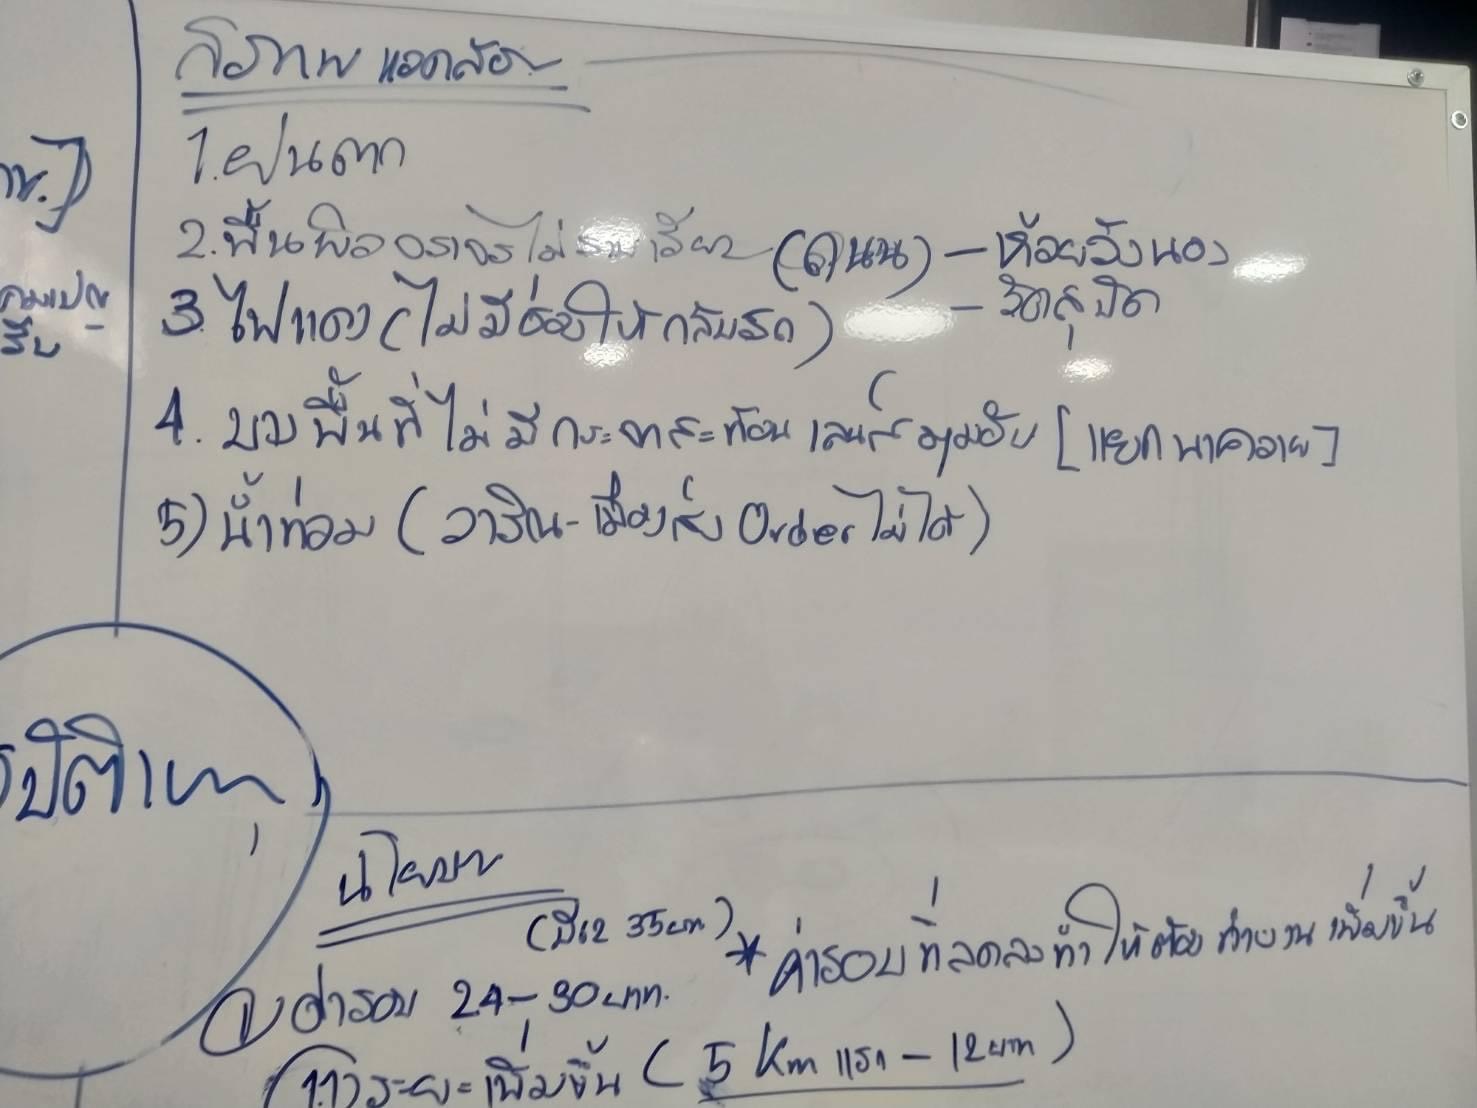 สภาพ แวดล้อม
1. ฝนตก
2. พื้นผิวจราจรไม่ราบเรียบ (ถนน) - ห้วยวังนอง
- วัดสุปัต
3. ไฟแดง (ไม่มีช่องให้กลับรถ)
4. บางพื้นที่ไม่มีกระจกสะท้อน เลนส์ มุมอับ [แยก นาควาย]
5) น้ำท่วม (วาริน - เมืองส่ง Order ไม่ได้)
รบ
อุบัติเหตุ
นโยบาย
(ปี62 35บาท)
* ค่ารอบที่ลดลงทำให้ต้องทำงานเพิ่มขึ้น
1. ค่ารอบ 24-30บาท.
1.1) ระยะเพิ่มขึ้น (5 Km แรก - 12บาท)